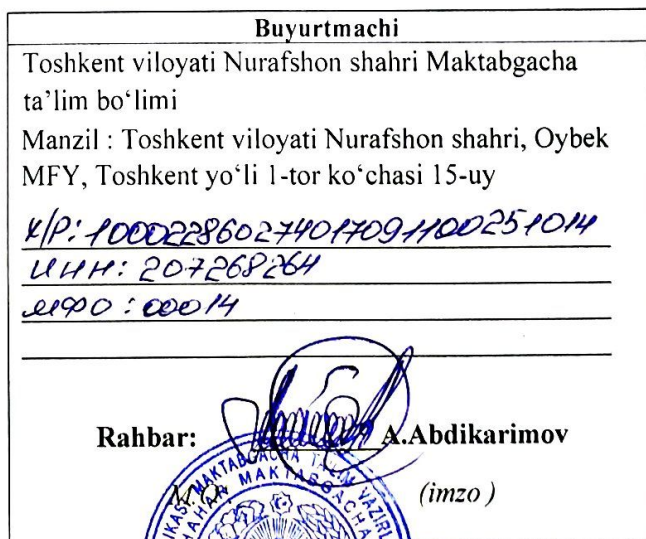 Buyurtmachi
Toshkent viloyati Nurafshon shahri Maktabgacha
ta'lim bo‘limi
Manzil : Toshkent viloyati Nurafshon shahri, Oybek
MFY, Toshkent yo‘li 1-tor ko‘chasi 15-uy
Х/Р: 100022860274017091100251014
ИНН: 207268264
МФО : 00014
Rahbar: A.Abdikarimov
M.O‘. (imzo )
MAKTABGACHA TA'LIM VAZIRL
SHAHAR MAKTABGACHA